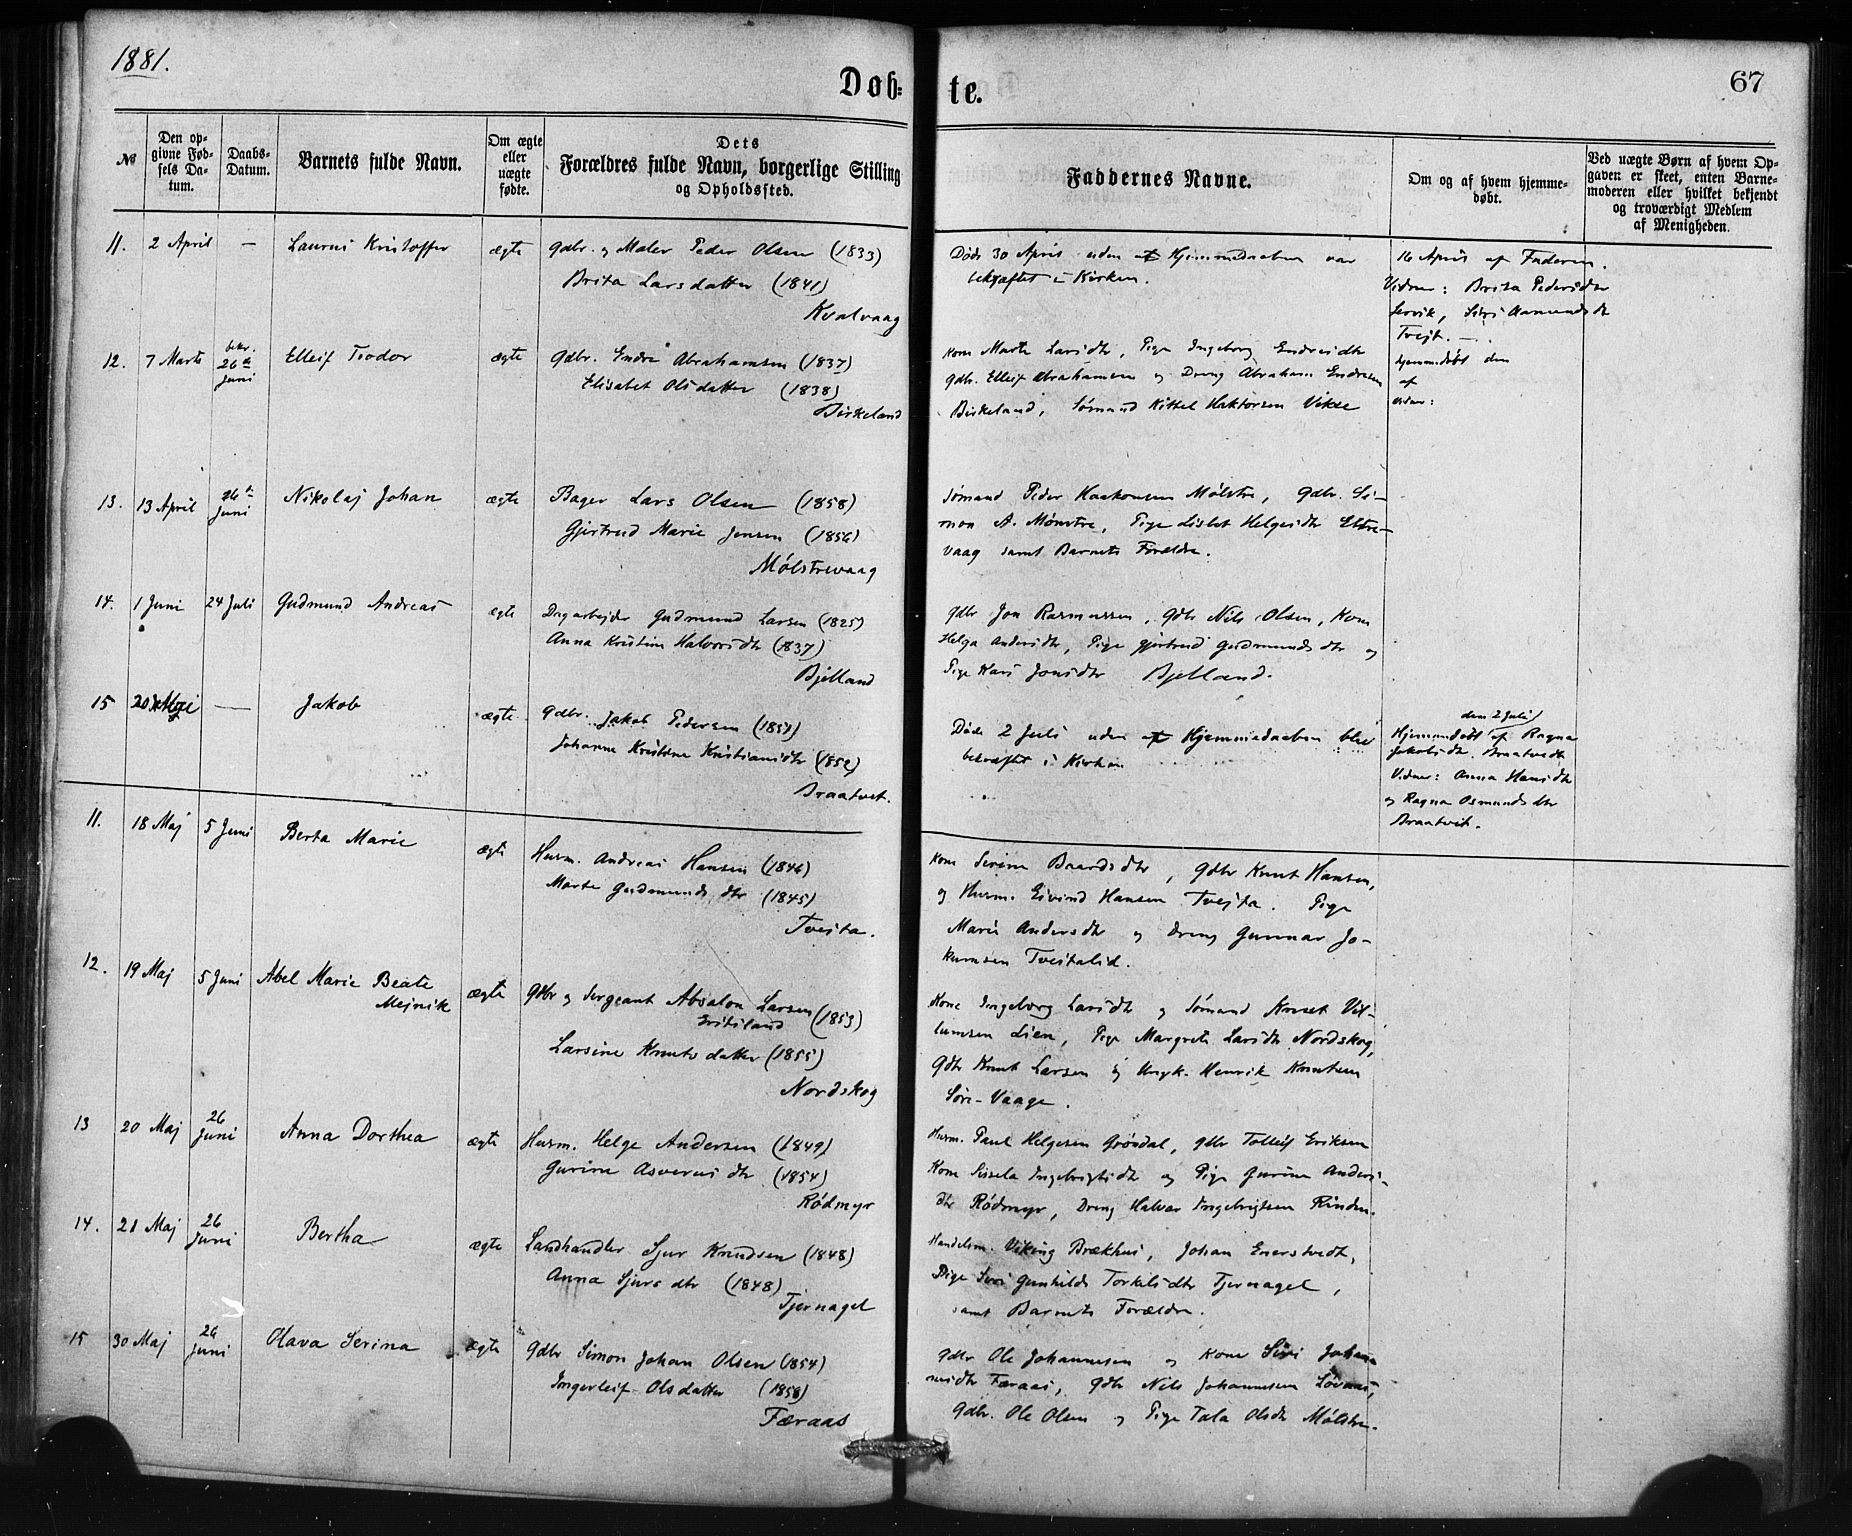 1881.
Døb=
te.
67
№
Den op-
givne Fød-
sels Da-
tum.
Daabs-
Datum.
Barnets fulde Navn.
Om ægte
eller
uægte
fødte.
Dets
Forældres fulde Navn, borgerlige Stilling
og Opholdssted.
Faddernes Navne.
Om og af hvem hjemme-
døbt.
Ved uægte Børn af hvem Op-
gaven er skeet, enten Barne-
moderen eller hvilket bekjendt
og troværdigt Medlem
af Menigheden.
11. 2 April — Laurus Kristoffer ægte Gdbr. og Maler Peder Olsen (1833)
Brita Larsdatter (1841)
Kvalvaag
Døde 30 April uden at Hjemmedaaben var
bekræftet i Kirken.
16 April af Faderen.
Vidner: Brita Pedersdtr
Tvejt.
12. 7 Marts bekr. 26de Juni Elleif Teodor ægte Gdbr. Endre Abrahamsen (1837)
Elisabet Olsdatter (1838)
Birkeland
Kone Marta Larsdtr, Pige Ingeborg Endresdtr
Gdbr. Elleif Abrahamsen og Dreng Abraham Endresen
Birkeland, Sømand Kittel Haktorsen Vikse
hjemmedøbt den
af
Vidner:
13. 13 April 26de Juni Nikolaj Johan ægte Bager Lars Olsen (1858)
Gjertrud Marie Jensen (1856)
Mølstrevaag
Sømand Peder Haakonsen Mølstre, Gdbr. Si-
mon A. Mønstre, Pige Lisbet Helgesdtr Eltre-
vaag samt Barnets Forældre.
14. 1 Juni 24 Juli Gudmund Andreas ægte Dagarbejder Gudmund Larsen (1825)
Anna Kristine Halvorsdtr (1837)
Bjelland
Gdbr Jon Rasmussen, Gdbr Nils Olsen, Kone
Helga Andersdtr, Pige Gjertrud Gudmundsdtr og
Pige Kari Jonsdtr Bjelland.
15 20 — Jakob ægte. Gdbr. Jakob Pedersen (1851)
Johanne Kristine Kristiansdtr (1852)
Braatvet.
Døde 2 Juli uden at Hjemmedaaben blev
bekræftet i Kirken
den 2 Juli
Hjemmedøbt af Ragna
Jakobsdtr Braatvedt
Vidner: Anna Hansdtr
og Ragna Osmundsdtr
Braatvet.
11. 18 Maj 5 Juni Berta Marie ægte Husm. Andreas Hansen (1846)
Marta Gudmundsdtr (1845)
Tvejta.
Kone Serine Baardsdtr, Gdbr Knut Hansen,
og Husm. Eivind Hansen Tvejta. Pige
Marie Andersdtr og Dreng Gunnar Jo-
kumsen Tveitalid.
12. 19 Maj 5 Juni Abel Marie Beate
Mejnik ægte Gdbr og Sergeant Absalon Larsen
(1853)
Larsine Knutsdatter (1855)
Nordskog
Kone Ingeborg Larsdtr og Sømand Knut Vil-
lumsen Lien, Pige Margrete Larsdtr Nordskog,
Gdbr Knut Larsen og Ungk. Henrik Knutsen
Søre-Vaage.
13 20 Maj 26 Juni Anna Dorthea ægte Husm. Helge Andersen (1849)
Gurine Asverusdtr (1854)
Rødmyr
Husm. Paul Helgesen Grøsdal, Gdbr Tolleif Eriksen
Kone Sissela Ingebrigtsdtr og Pige Gurine Anders-
dtr Rødmyr, Dreng Halvor Ingebrigtsen Rinden.
14. 21 Maj 26 Juni Bertha ægte Landhandler Sjur Knudsen (1848)
Anna Sjursdtr (1848)
Tjernagel
Handelsm. Viking Brækhus, Johan Enerstvedt,
Pige Siri Gunhilde Torkilsdtr Tjernagel,
samt Barnets Forældre.
15 30 Maj 26 Juni Olava Serina ægte Gdbr Simon Johan Olsen (1854)
Ingerleif Olsdatter (1858)
Færaas
Gdbr Ole Johannesen og Kone Siri Johan-
nesdtr Færaas, Gdbr Nils Johannesen Løvaas,
Gdbr. Ole Olsen og Pige Tala Olsdtr Mølstre.